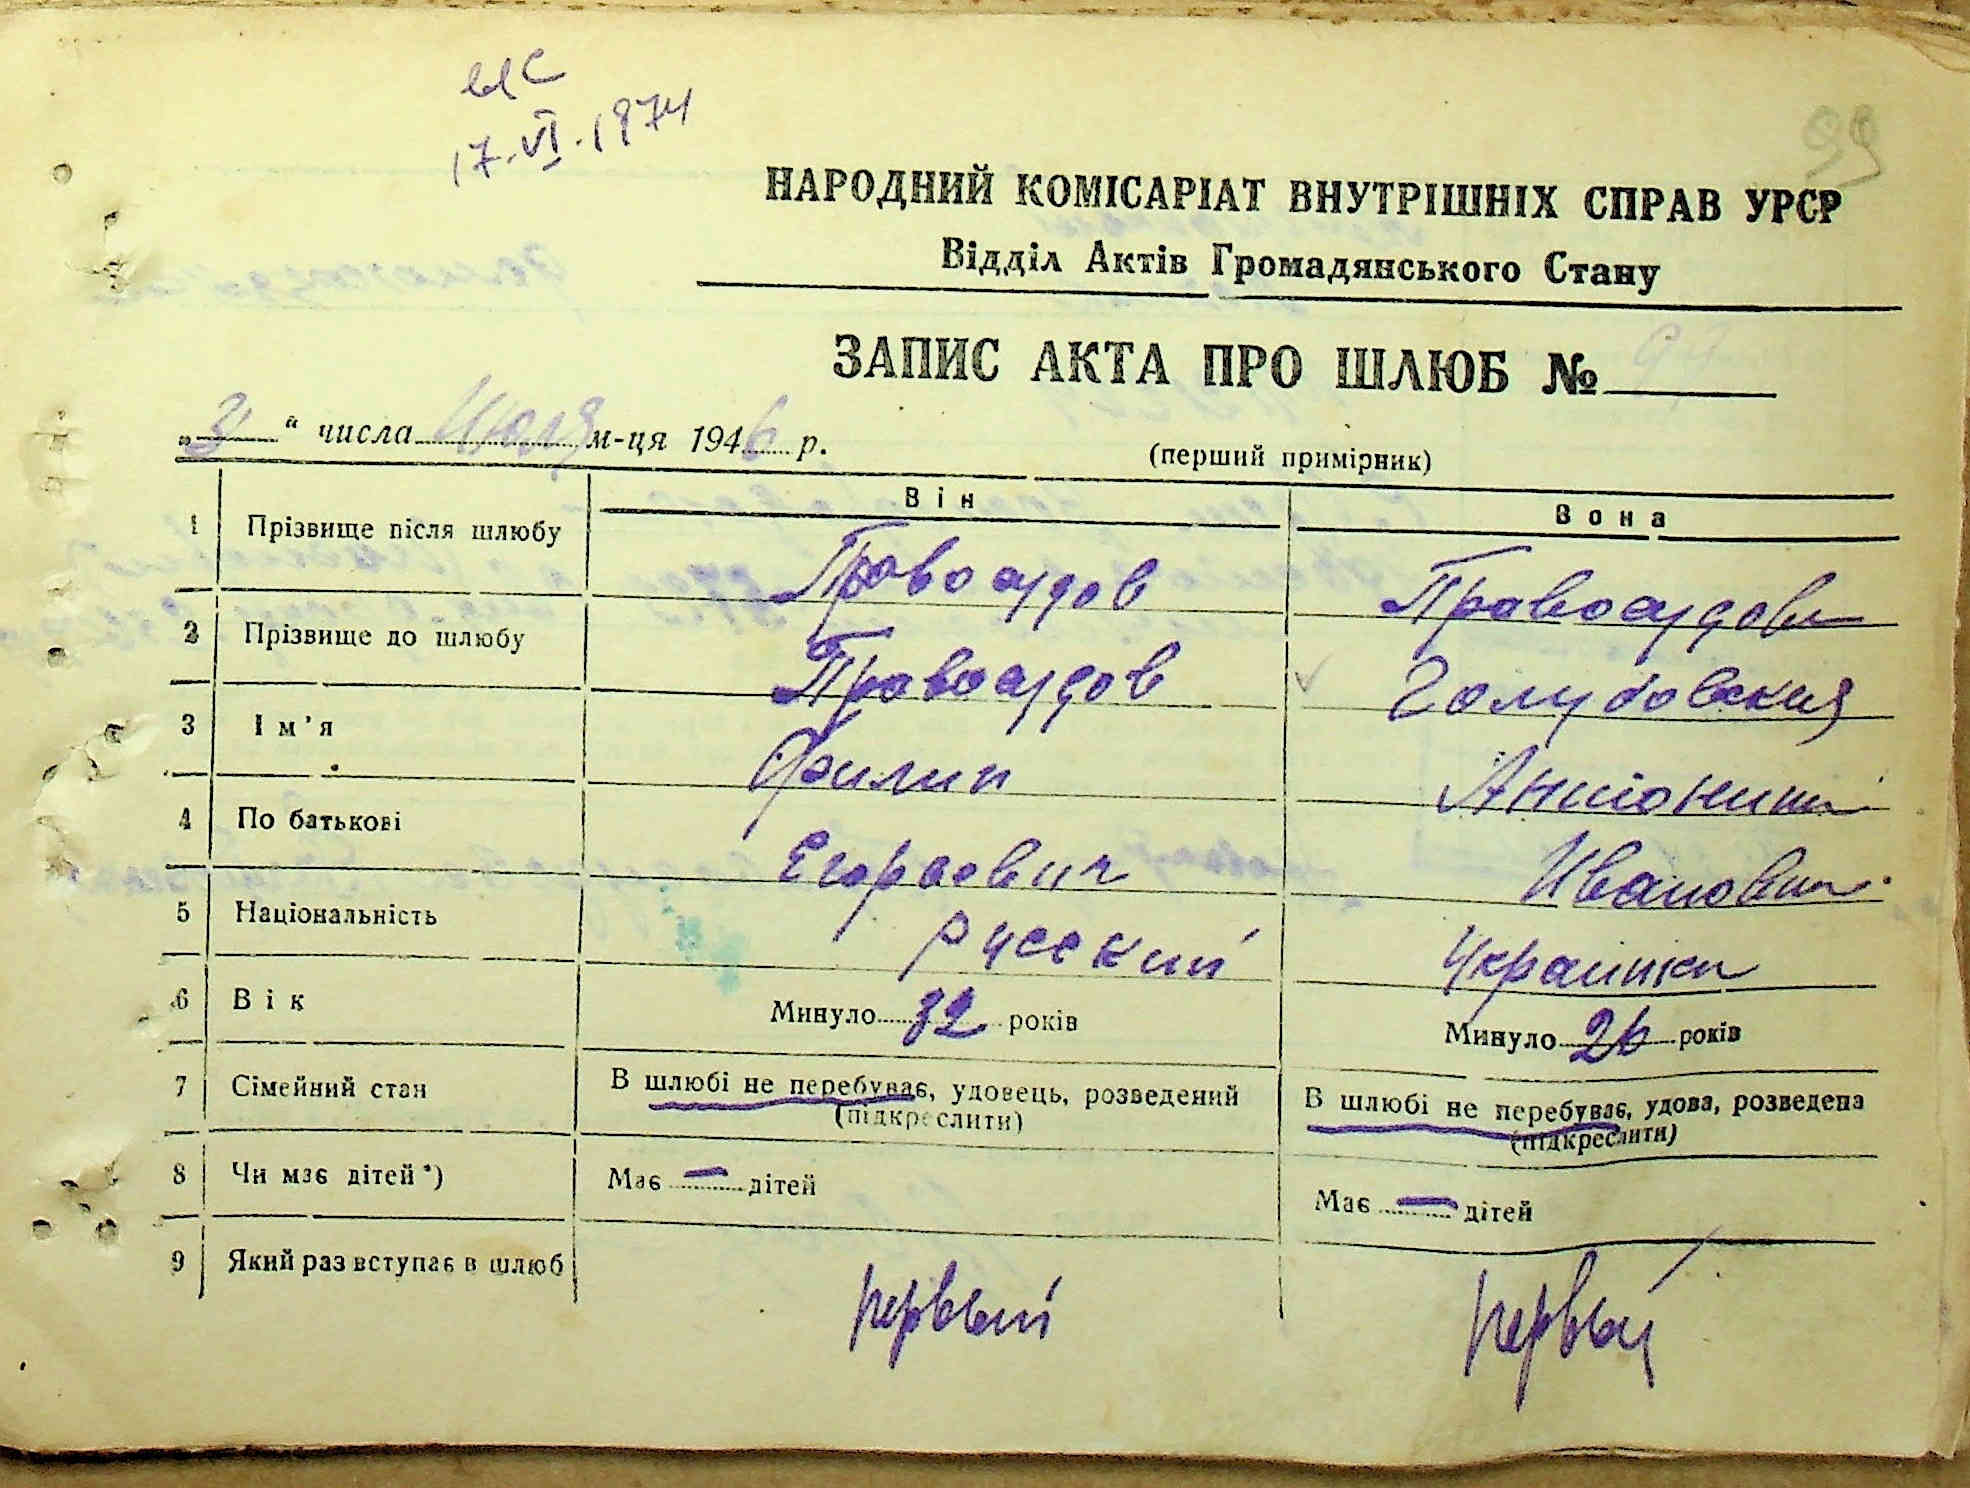 17.VI.1974
99
НАРОДНИЙ КОМІСАРІАТ ВНУТРІШНІХ СПРАВ УРСР
Відділ Актів Громадянського Стану
ЗАПИС АКТА ПРО ШЛЮБ № 99
„3“ числа Июля м-ця 1946 р.
(перший примірник)
Він Вона
1 Прізвище після шлюбу Правосудов Правосудова
2 Прізвище до шлюбу Правосудов Голубовская
3 Ім'я Филип Антонина
4 По батькові Егораевич Ивановна
5 Національність русский Украинка
6 Вік Минуло 32 років Минуло 26 років
7 Сімейний стан В шлюбі не перебуває, удовець, розведений В шлюбі не перебуває, удова, розведена
(підкреслити) (підкреслити)
8 Чи має дітей*) Має — дітей Має — дітей
9 Який раз вступає в шлюб первый первый